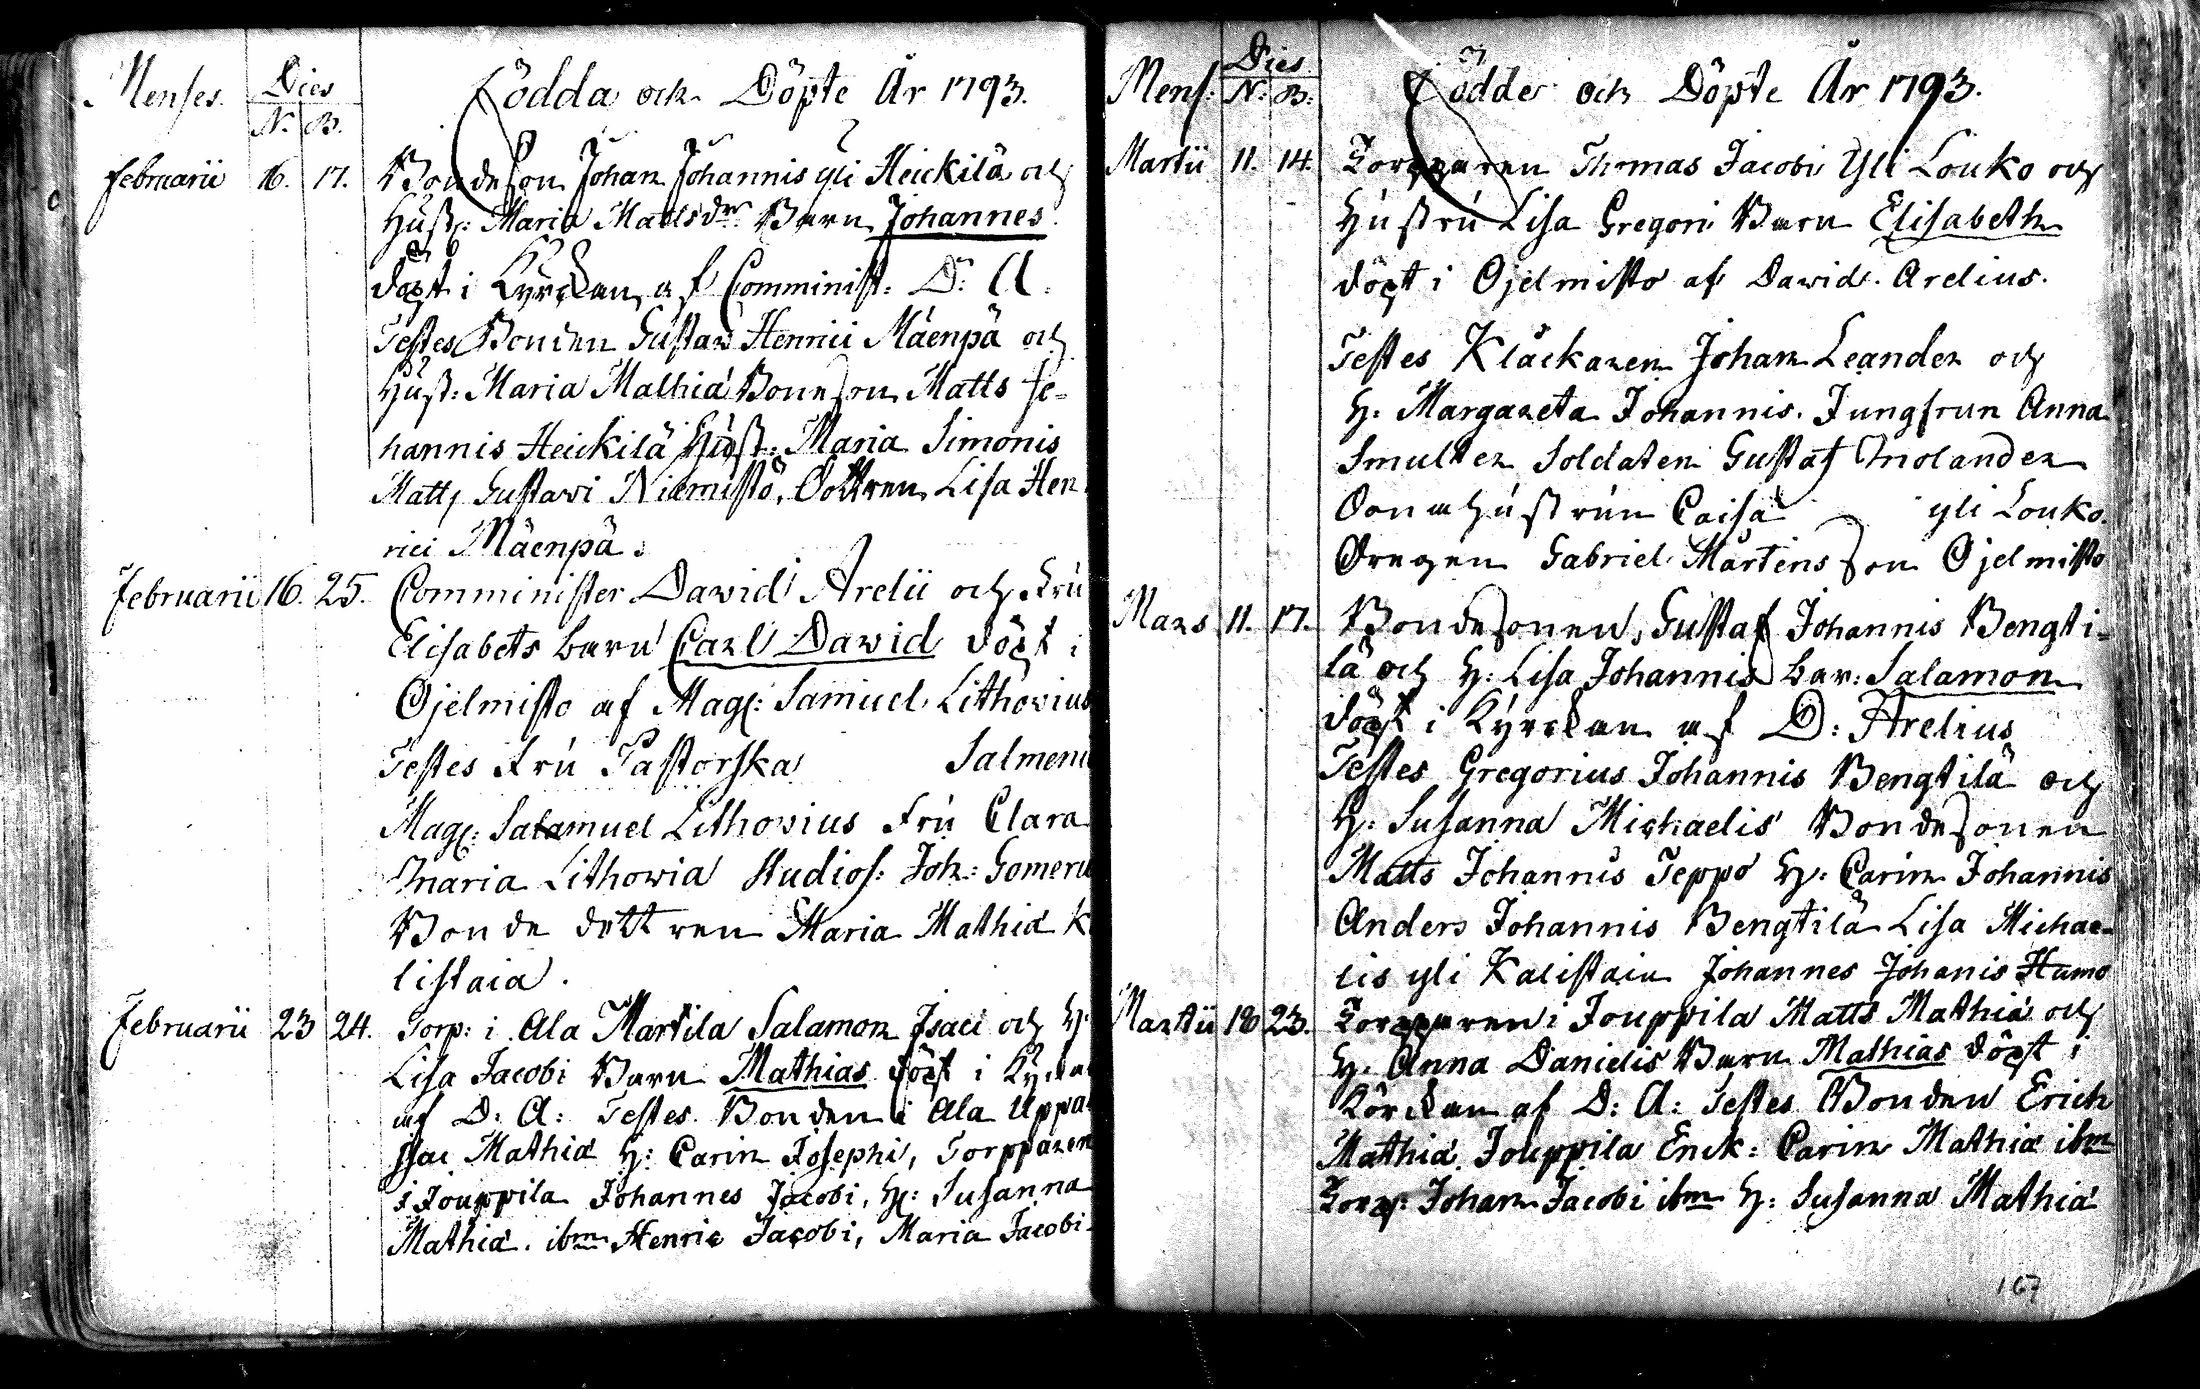 Menses. Dies
N. B.
Födda och Döpte År 1793.
Februarii 16. 17. Bondeson Johan Johannis yli Heickilä och
Hust: Maria Mattsdr. Barn Johannes
döpt i Kyrckan af Comminist: D: A.
Testes Bonden Gustaw Henrici Mäenpä och
Hust: Maria Mathiæ Boneson Matts Jo-
hannis Heickilä Hust: Maria Simonis
Matts Gustawi Niemistö, Dottren Lisa Hen
rici Mäenpä.
Februarii 16. 25. Comminister Dawid Arelii och Fru
Elisabets barn Carl Dawid döpt i
Ojelmisto af Mag: Samuel Lithovius
Testes Fru Pastorska Salmeni
Mag: Salamuel Lithovius Fru Clara
Maria Lithovia Studios: Joh: Gomeru
Bonde dottren Maria Mathiæ K
listaia.
Februarii 23 24. Torp: i Ala Martila Salamon Isaci och H:
Lisa Jacobi Barn Mathias döpt i Kyrka
af D: A: Testes Bonden i Ala Uppa
Isac Mathiæ H: Carin Josephi, Torpparen
i Jouppila Johannes Jacobi, H: Susanna
Mathiæ. ibm Henric Jacobi, Maria Jacobi
Mens: Dies
N. B.
Födde och Döpte År 1793.
Martii 11. 14. Torpparen Thomas Jacobi Yli Louko och
Hustru Lisa Gregori Barn Elisabeth
döpt i Ojelmisto af Dawid. Arelius.
Testes Klåckaren Johan Leander och
H: Margareta Johannis. Jungfrun Anna
Smulter Soldaten Gustaf Molander
Bonahustrun Caisa yli Louko.
Drengen Gabriel Mårtensson Ojelmisto
Mars 11. 17. Bondesonen, Gustaf Johannis Bengti-
lä och H: Lisa Johannis bar: Salamon
döpt i Kyrckan af D: Arelius
Testes Gregorius Johannis Bengtilä och
H: Susanna Michaelis Bondesonen
Matts Johannis Teppo H: Carin Johannis
Anders Johannis Bengtilä Lisa Michae-
lis yli Kalistaia Johannes Johanis Hamo
Martii 18 23. Torpparen i Jouppila Matts Mathiæ och
H. Anna Danielis Barn Mathias döpt i
Körckan af D: A: Testes Bonden Erich
Mathiæ Jouppila Enck: Carin Mathiæ ibm
Torp: Johan Jacobi ibm H: Susanna Mathiæ
167